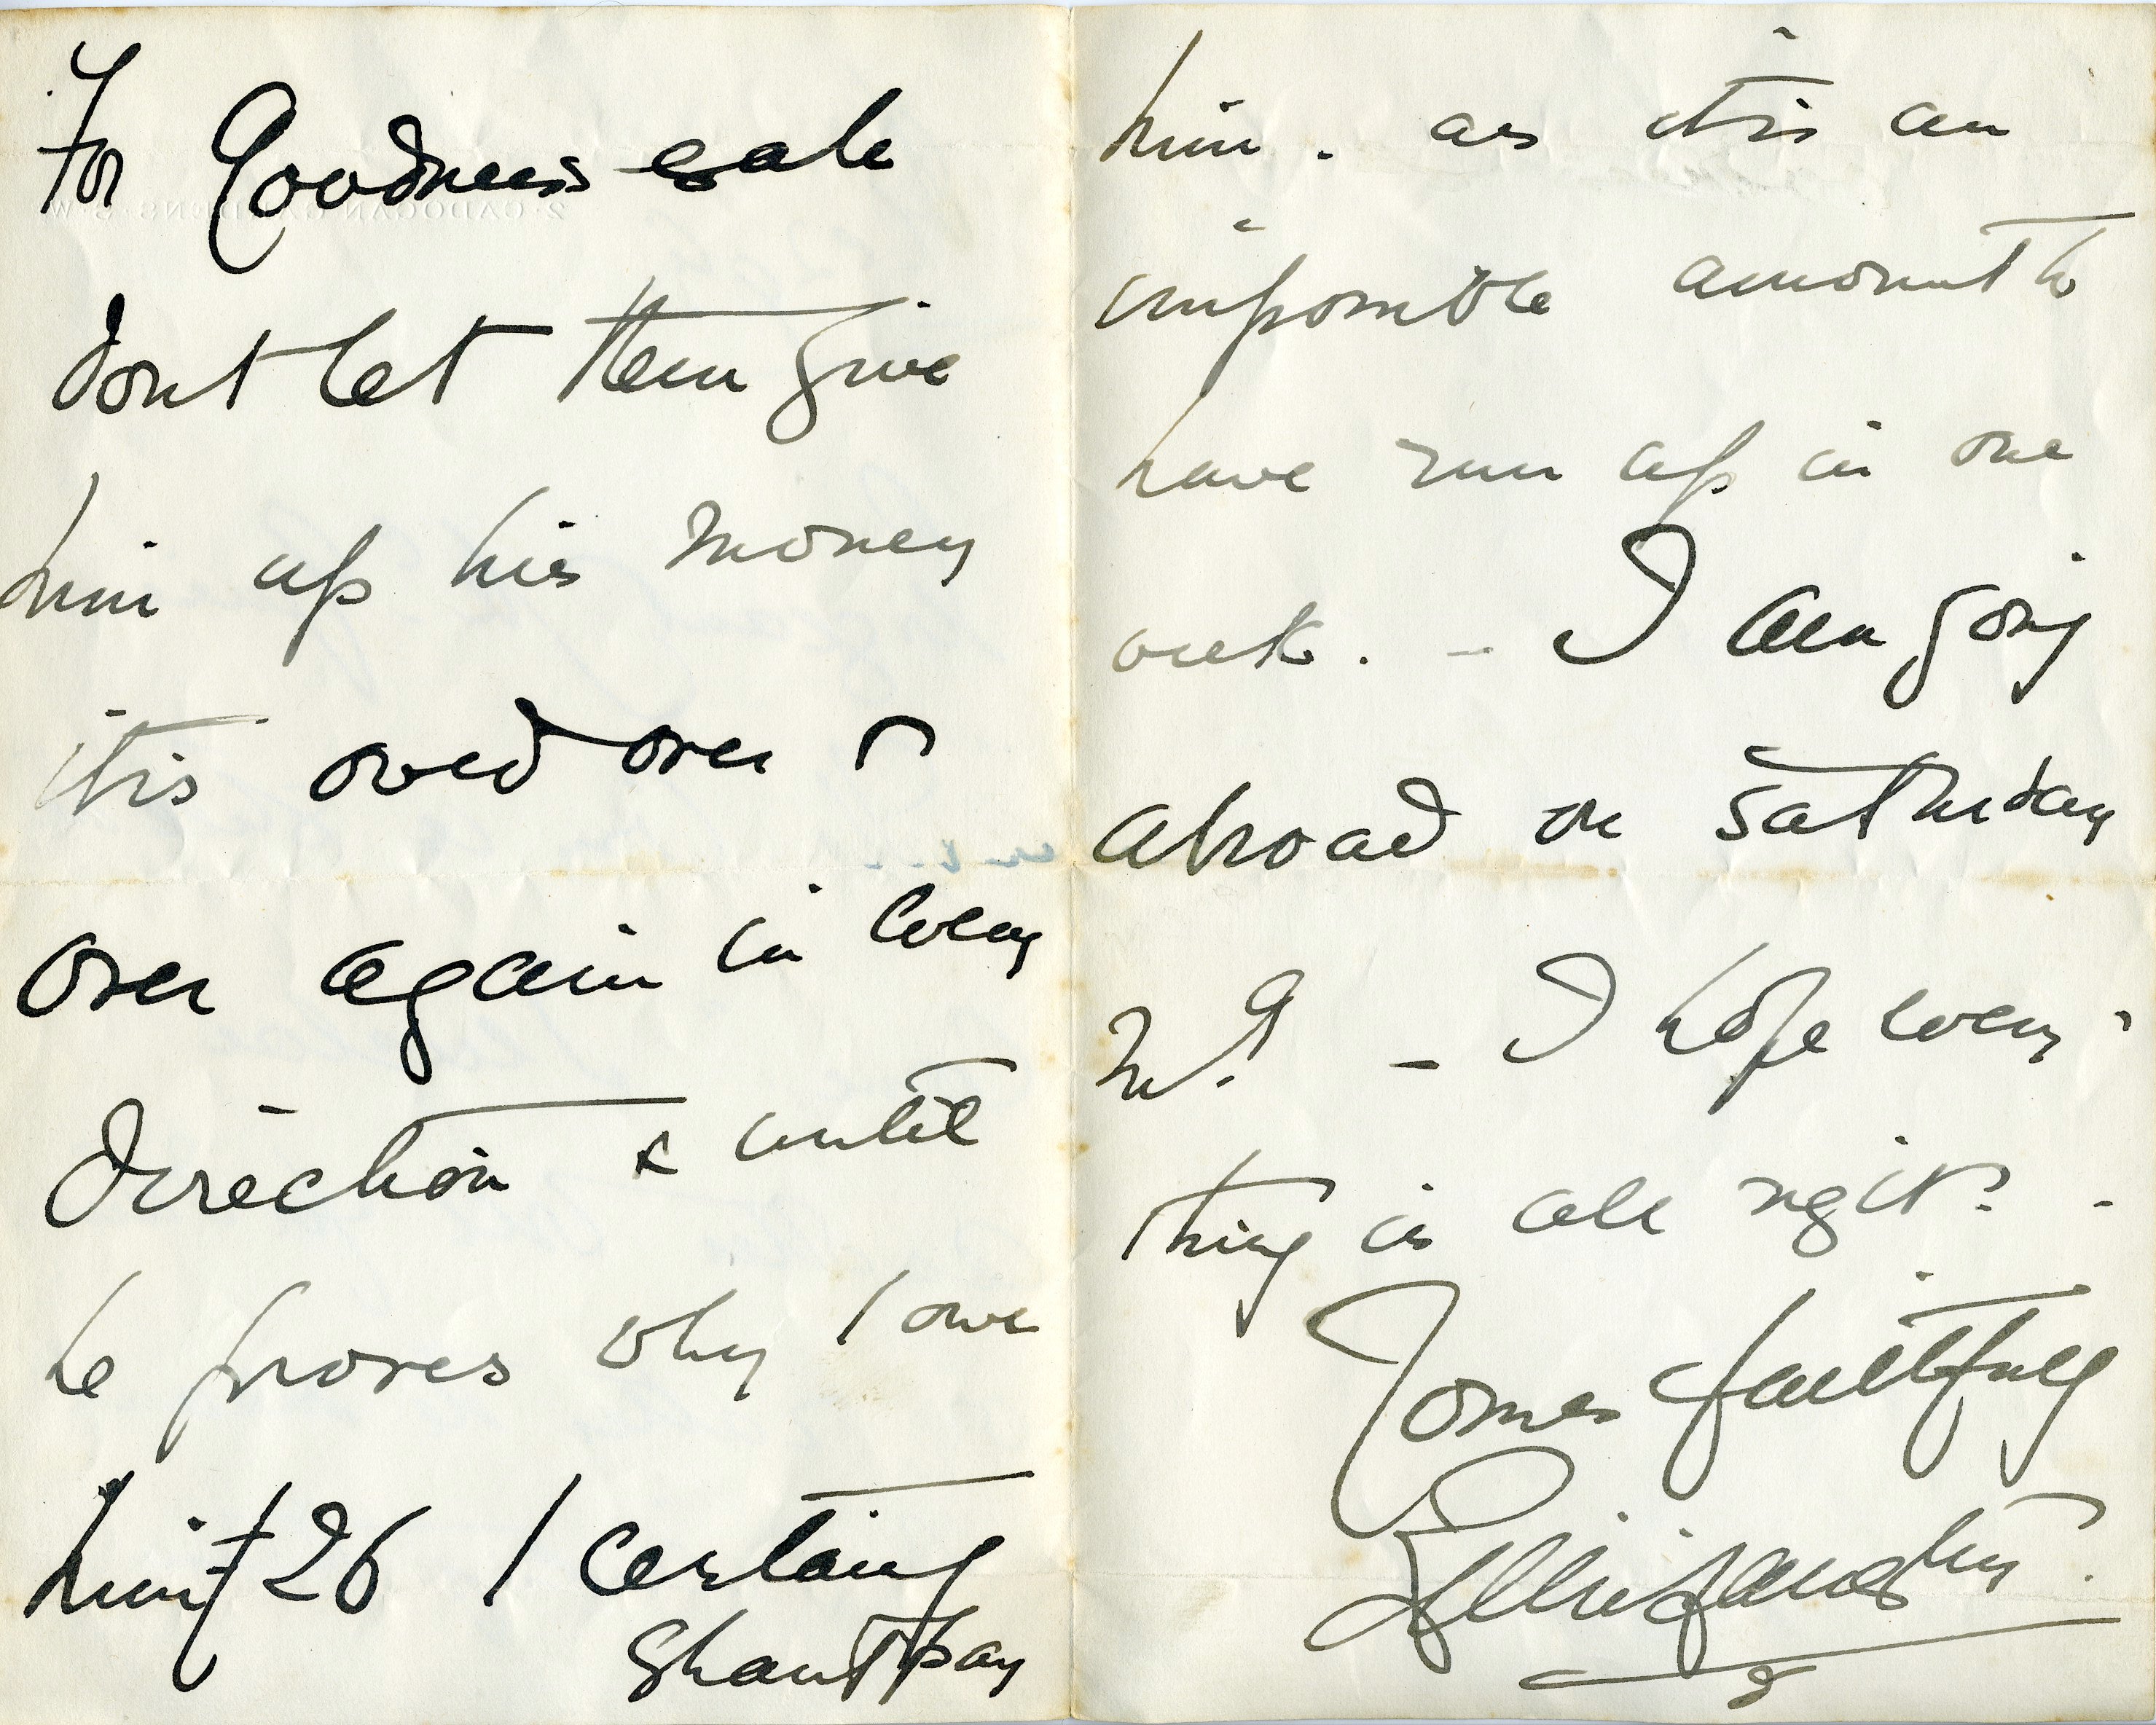 For Goodness sake
dont let them give
him up his money
it is owed over &
over again in every
direction & until
he proves why I owe
him £26 I certainly
shant pay
him. as it is an
impossible amount to
have run up in one
week. - I am going
abroad on Saturday
- I hope every
thing is all right? -
Yours faithfully
Lillie Langtry.
2. CADOGAN GARDENS. S.W.